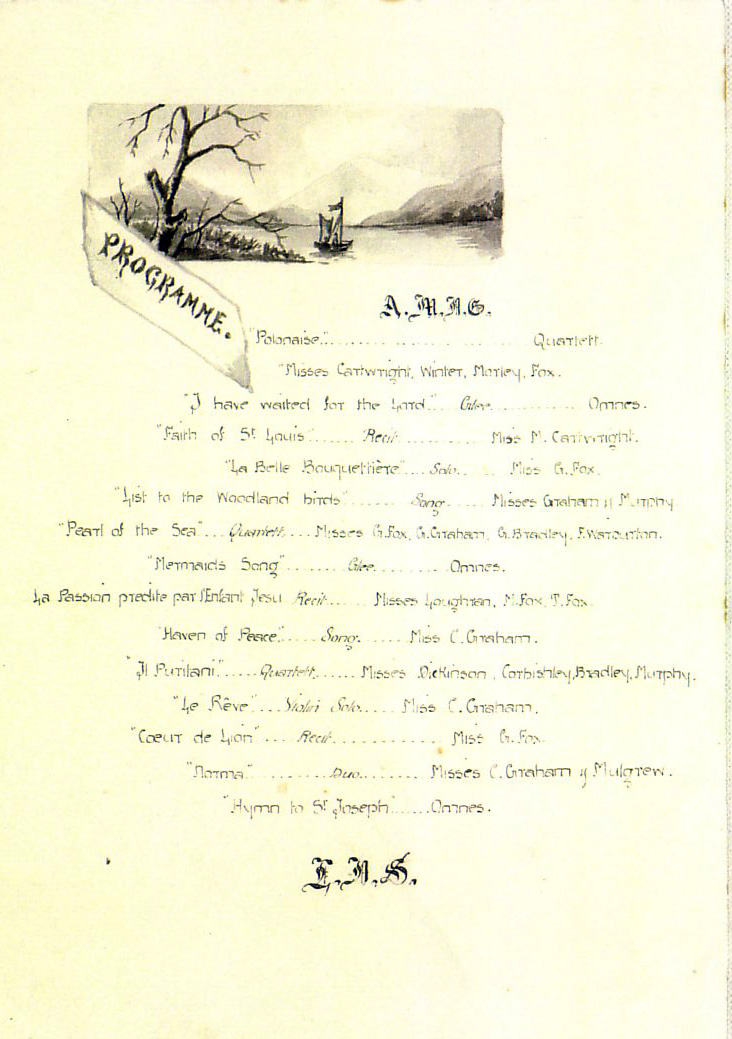 PROGRAMME.
A.M.D.G.
"Polonaise" .......... Quartett.
"Misses Cartwright, Winter, Morley, Fox.
"I have waited for the Lord".. Glee .......... Omnes.
"Faith of St Louis"..... Recit. ........ Miss M. Cartwright.
"La Belle Bouquettière"... Solo..... Miss G. Fox.
"List to the Woodland birds"..... Song..... Misses Graham & Murphy
"Pearl of the Sea"... Quartett... Misses G. Fox, G. Graham, G. Bradley, F. Warburton.
"Mermaids Song"....... Glee........ Omnes.
La Passion predite par l'Enfant Jesu Recit..... Misses Loughran, M. Fox, T. Fox.
"Haven of Peace"..... Song...... Miss C. Graham.
"Il Puritani"..... Quartett..... Misses Dickinson, Corbishley, Bradley, Murphy.
"Le Rêve"... Violin Solo..... Miss C. Graham.
"Cœur de Lion".... Recit........... Miss G. Fox.
"Norma"........ Duo....... Misses C. Graham & Mulgrew.
"Hymn to St Joseph"..... Omnes.
L.D.S.